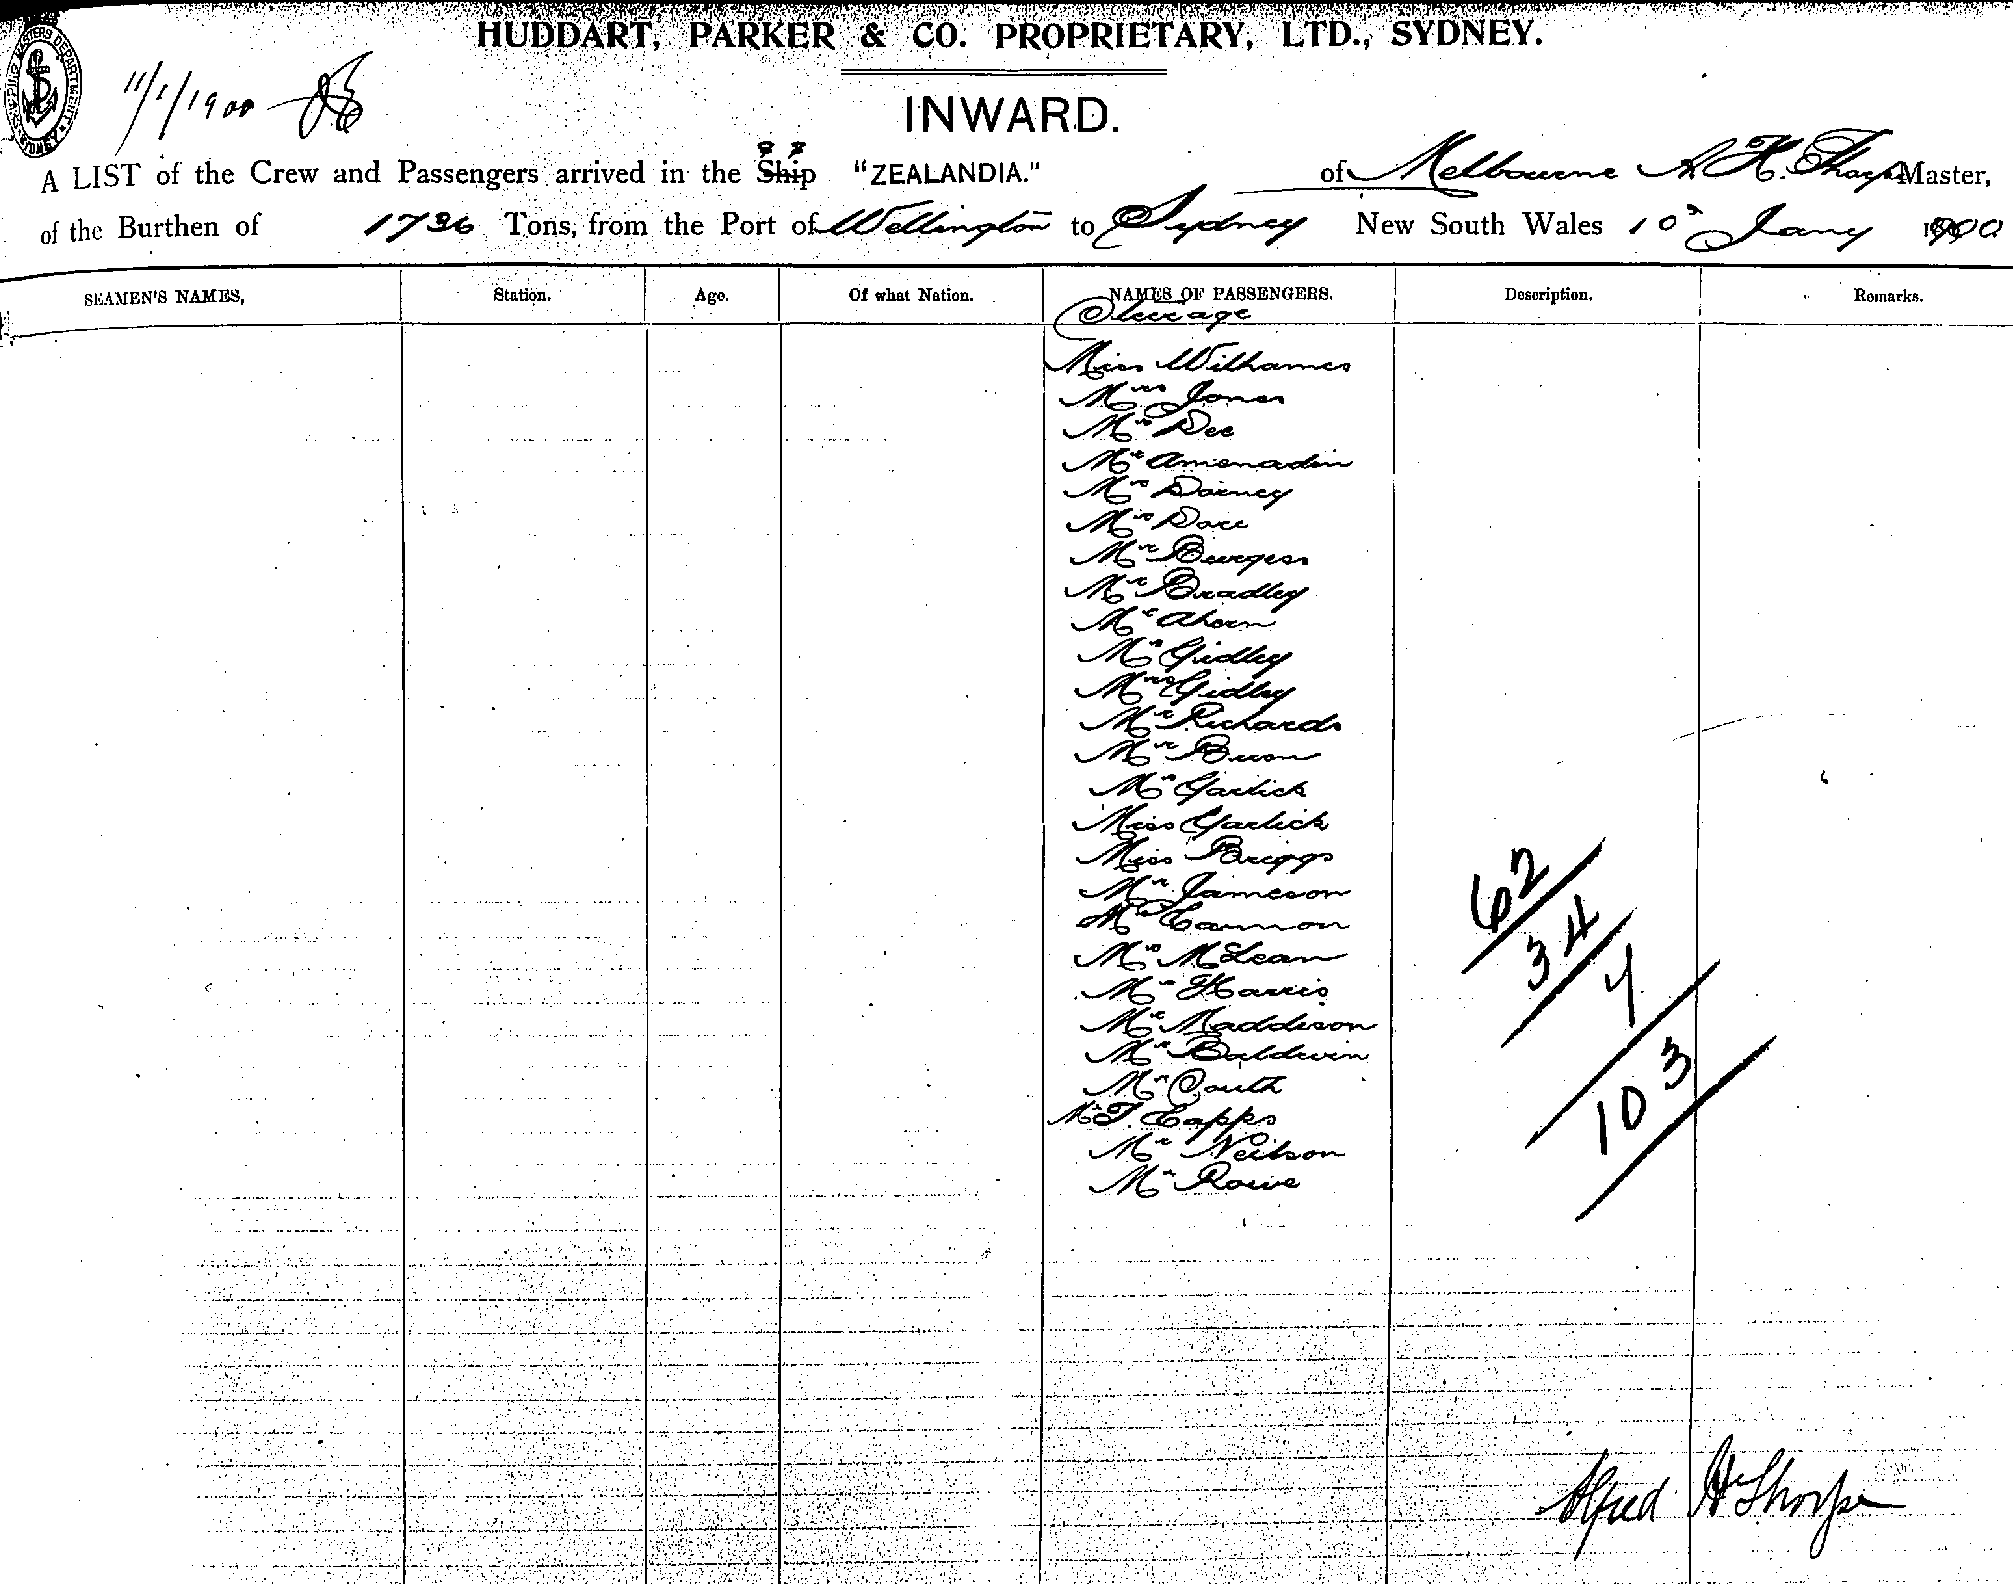 HUDDART, PARKER & CO. PROPRIETARY, LTD., SYDNEY.
11/1/1900
INWARD.
A LIST of the Crew and Passengers arrived in the Ship SS "ZEALANDIA." of Melbourne A H. Thorpe Master,
of the Burthen of 1736 Tons, from the Port of Wellington to Sydney New South Wales 10 Jany 1900
SEAMEN'S NAMES, Station. Age. Of what Nation. NAMES OF PASSENGERS. Description. Remarks.
Steerage
Miss Williames
Mrs Jones
Mrs Dee
Mr Amenadin
Mrs Dorney
Mrs Dore
Mr Burgess
Mr Bradley
Mr Ahern
Mr Gidley
Mrs Gidley
Mr Richards
Mr
Mrs Garlick
Miss Garlick
Miss Briggs
Mr Jameson
Mrs Cannon
Mrs McLean
Mr Harris
Mr Maddison
Mr Baldwin
Mr South
Mr T. Capps
Mr Neilson
Mr Rowe
62
34
7
103
Alfred H Thorpe